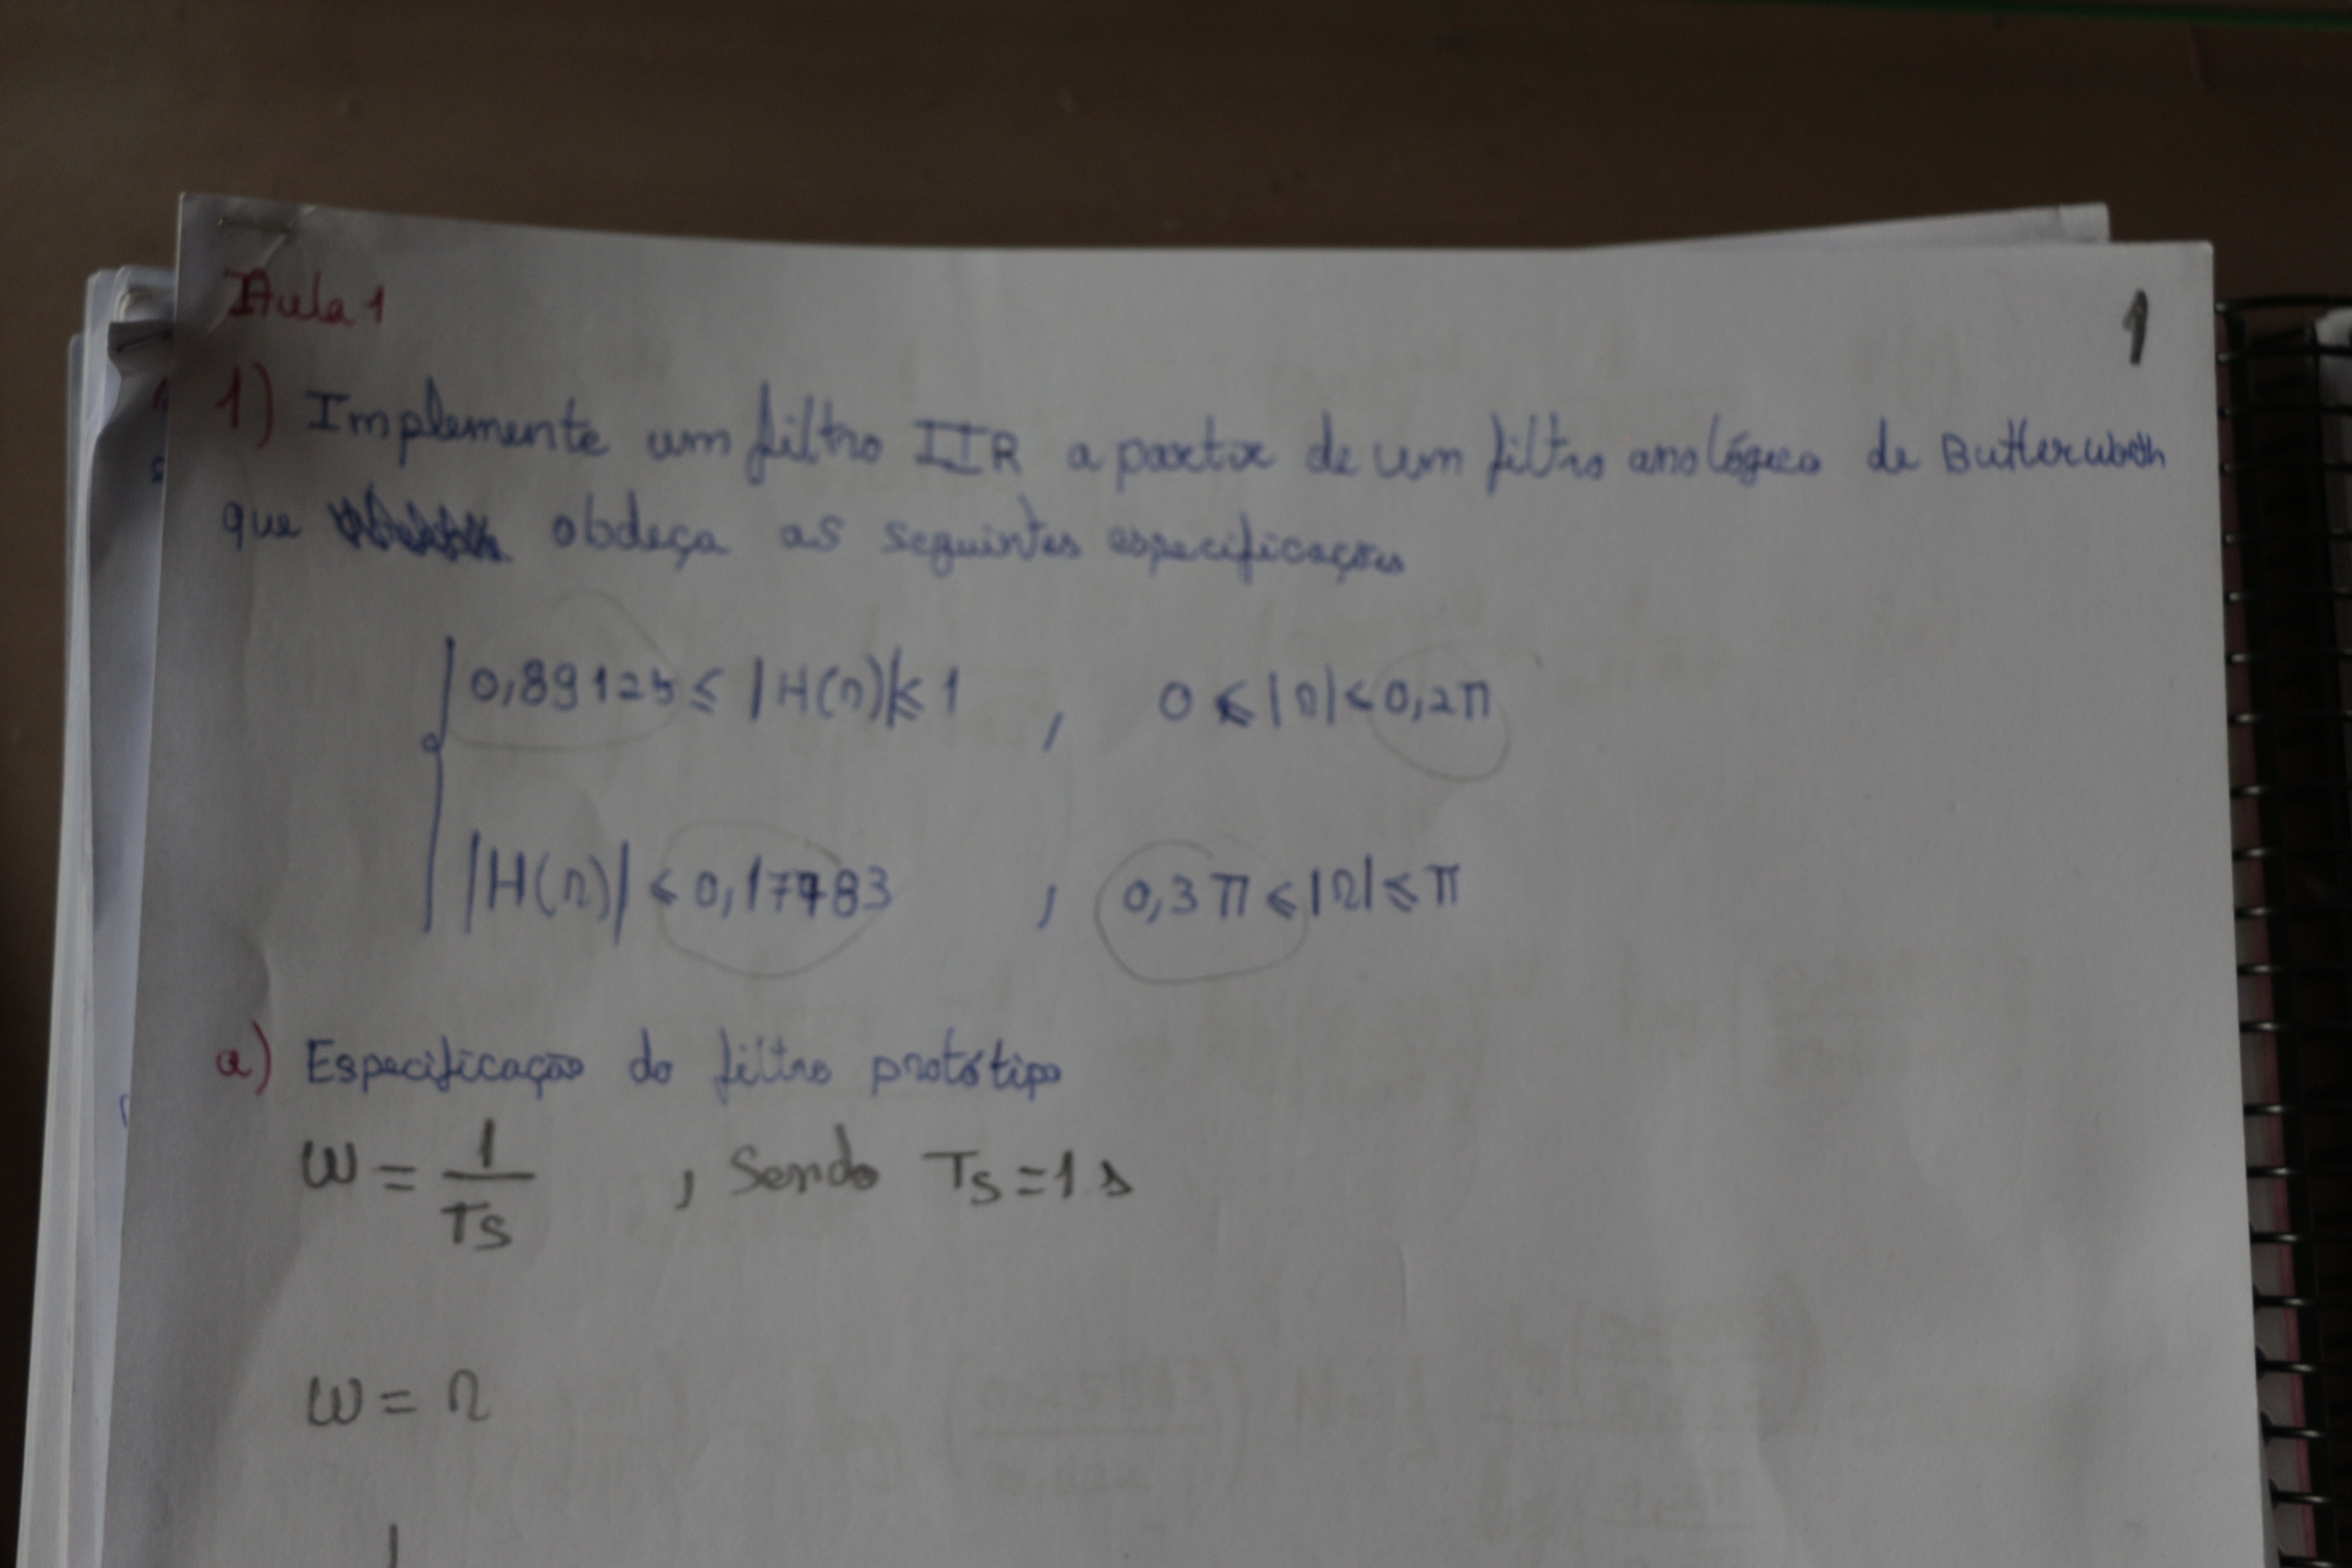 Aula 1
1
1) Implemente um filtro IIR a partir de um filtro analógico de Butterwoth
que obdeça as seguintes especificações
0,89125 ≤ |H(Ω)| ≤ 1 , 0 ≤ |Ω| ≤ 0,2π
|H(Ω)| ≤ 0,17783 , 0,3π ≤ |Ω| ≤ π
a) Especificação do filtro protótipo
ω = 1/Ts , Sendo Ts = 1 s
ω = Ω